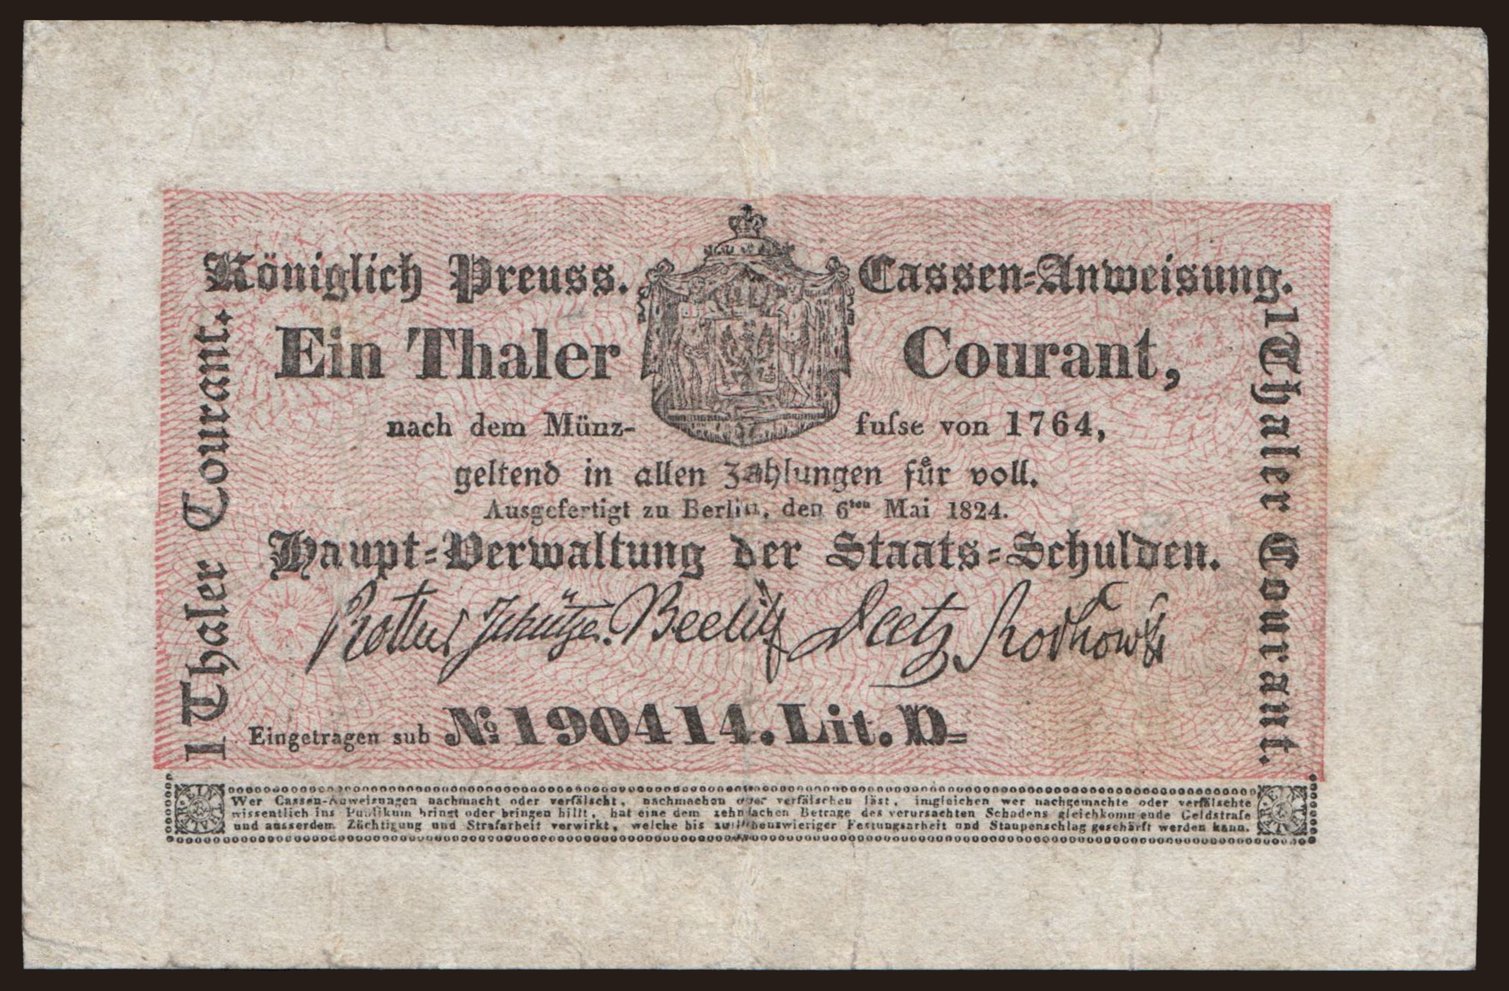 Königlich Preuss. Cassen-Anweisung.
Ein Thaler Courant,
nach dem Münz- fuſse von 1764,
geltend in allen Zahlungen für voll.
Ausgefertigt zu Berlin, den 6ten Mai 1824.
Haupt-Verwaltung der Staats-Schulden.
Rother Schütze. Beelitz Deetz Rochow
Eingetragen sub No 190414. Lit. D=
1 Thaler Courant.
1 Thaler Courant.
Wer Cassen-Anweisungen nachmacht oder verfälscht, nachmachen oder verfälschen läst, imgleichen wer nachgemachte oder verfälschte
wissentlich ins Publikum bringt oder bringen hilft, hat eine dem zehnfachen Betrage des verursachten Schadens gleichkommende Geldstrafe
und ausserdem Züchtigung und Strafarbeit verwirkt, welche bis zu lebenswieriger Festungsarbeit und Staupenschlag geschärft werden kann.